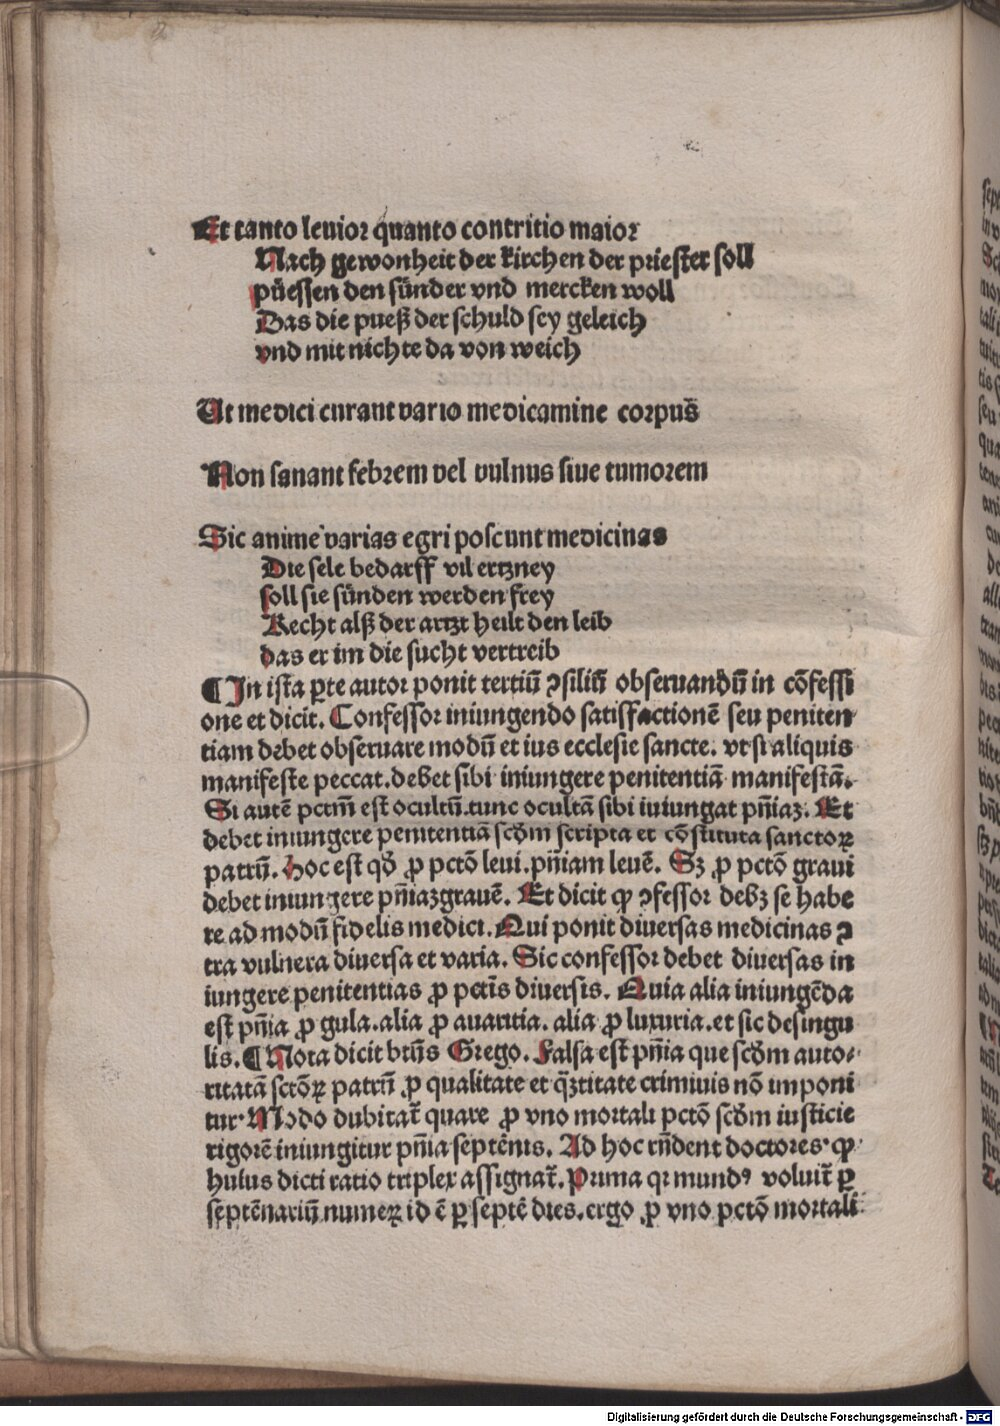 Et tanto leuior quanto contritio maior
Nach gewonheit der kirchen der priester soll
püessen den sünder vnd mercken woll
Das die pueß der schuld sey geleich
vnd mit nichte da von weich
Ut medici curant vario medicamine corpus
Non sanant febrem vel vulnus siue tumorem
Sic anime varias egri poscunt medicinas
Die sele bedarff vil ertzney
soll sie sünden werden frey
Recht alß der artzt heilt den leib
das er im die sucht vertreib
¶ In ista ꝑte autor ponit tertiū ↄsiliū obseruandū in cōfessi
one et dicit. Confessor iniungendo satisfactionē seu peniten
tiam debet obseruare modū et ius ecclesie sancte. vt si aliquis
manifeste peccat. debet sibi iniungere penitentiā manifestā.
Si autē pctm̄ est ocultū. tunc ocultā sibi iniungat pn̄iaꝫ. Et
debet iniungere penitentiā scḋm scripta et cōstituta sanctoꝝ
patrū. Hoc est qḋ ꝓ pctō leui. pn̄iam leuē. Sꝫ ꝓ pctō graui
debet iniungere pn̄iaꝫ grauē. Et dicit ꝙ ↄfessor debꝫ se habe
re ad modū fidelis medici. Qui ponit diuersas medicinas ↄ
tra vulnera diuersa et varia. Sic confessor debet diuersas in
iungere penitentias ꝓ pctīs diuersis. Quia alia iniungēda
est pn̄ia ꝓ gula. alia ꝓ auaritia. alia ꝓ luxuria. et sic de singu
lis. ¶ Nota dicit btūs Grego. Falsa est pn̄ia que scḋm auto⸗
ritatā sctōꝝ patrū ꝓ qualitate et q̄ꝫtitate criminis nō imponi
tur. Modo dubitat̄ quare ꝓ vno mortali pctō scḋm iusticie
rigorē iniungitur pn̄ia septēnis. Ad hoc rn̄dent doctores. ꝙ
huius dicti ratio triplex assignat̄. Prima qr mundꝰ voluit̄ ꝑ
septēnariū numeꝝ id ē ꝑ septē dies. ergo ꝓ vno pctō mortali
Digitalisierung gefördert durch die Deutsche Forschungsgemeinschaft - DFG